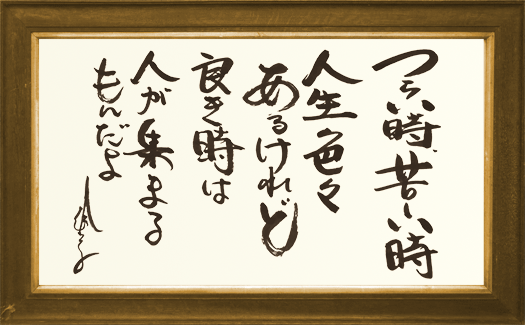 つらい時、苦しい時
人生色々
あるけれど
良き時は
人が集まる
もんだよ